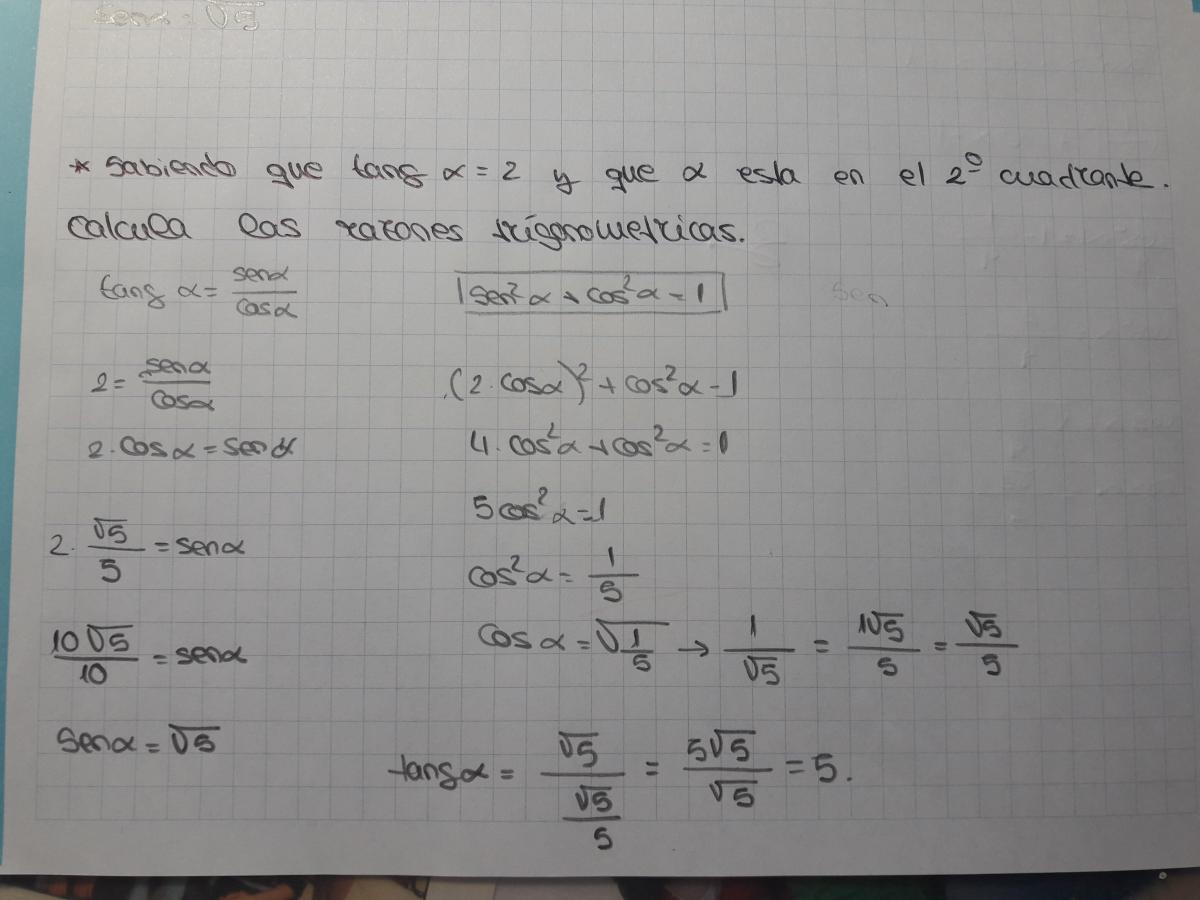 senα = √5
* Sabiendo que tang α = 2 y que α esta en el 2º cuadrante.
Calcula las razones trigonometricas.
tang α = senα/cosα
sen²α + cos²α = 1
sen
2 = senα/cosα
(2·cosα)² + cos²α = 1
2·cosα = senα
4·cos²α + cos²α = 1
5cos²α = 1
2·√5/5 = senα
cos²α = 1/5
10√5/10 = senα
cosα = √1/5 → 1/√5 = 1√5/5 = √5/5
senα = √5
tangα = √5/(√5/5) = 5√5/√5 = 5.